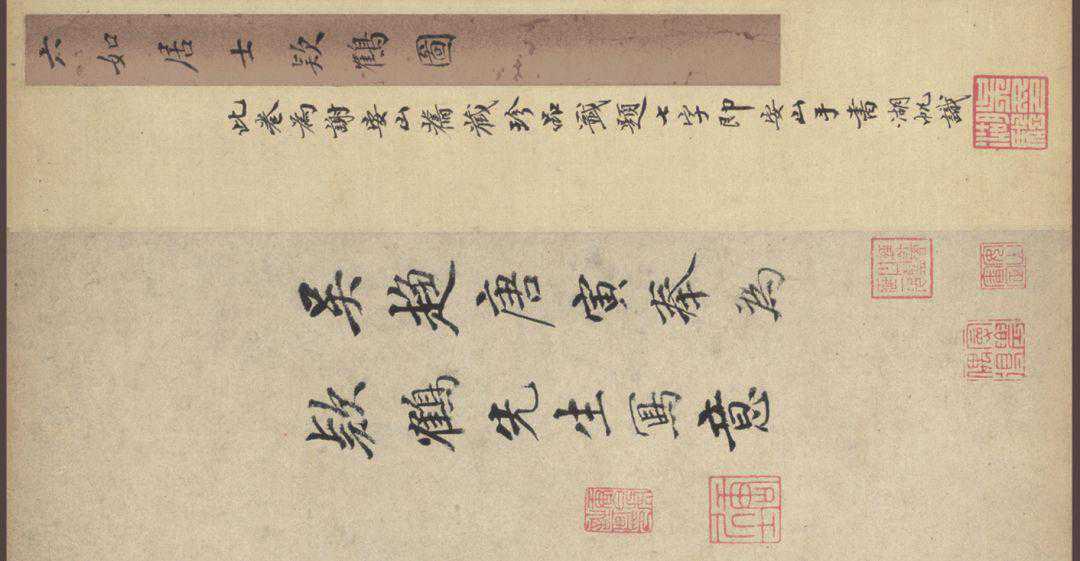 六如居士欵鶴圖
此卷為謝安山舊藏珍品籤題七字即安山手書湖帆識
吳趨唐寅奉為
欵鶴先生寫意